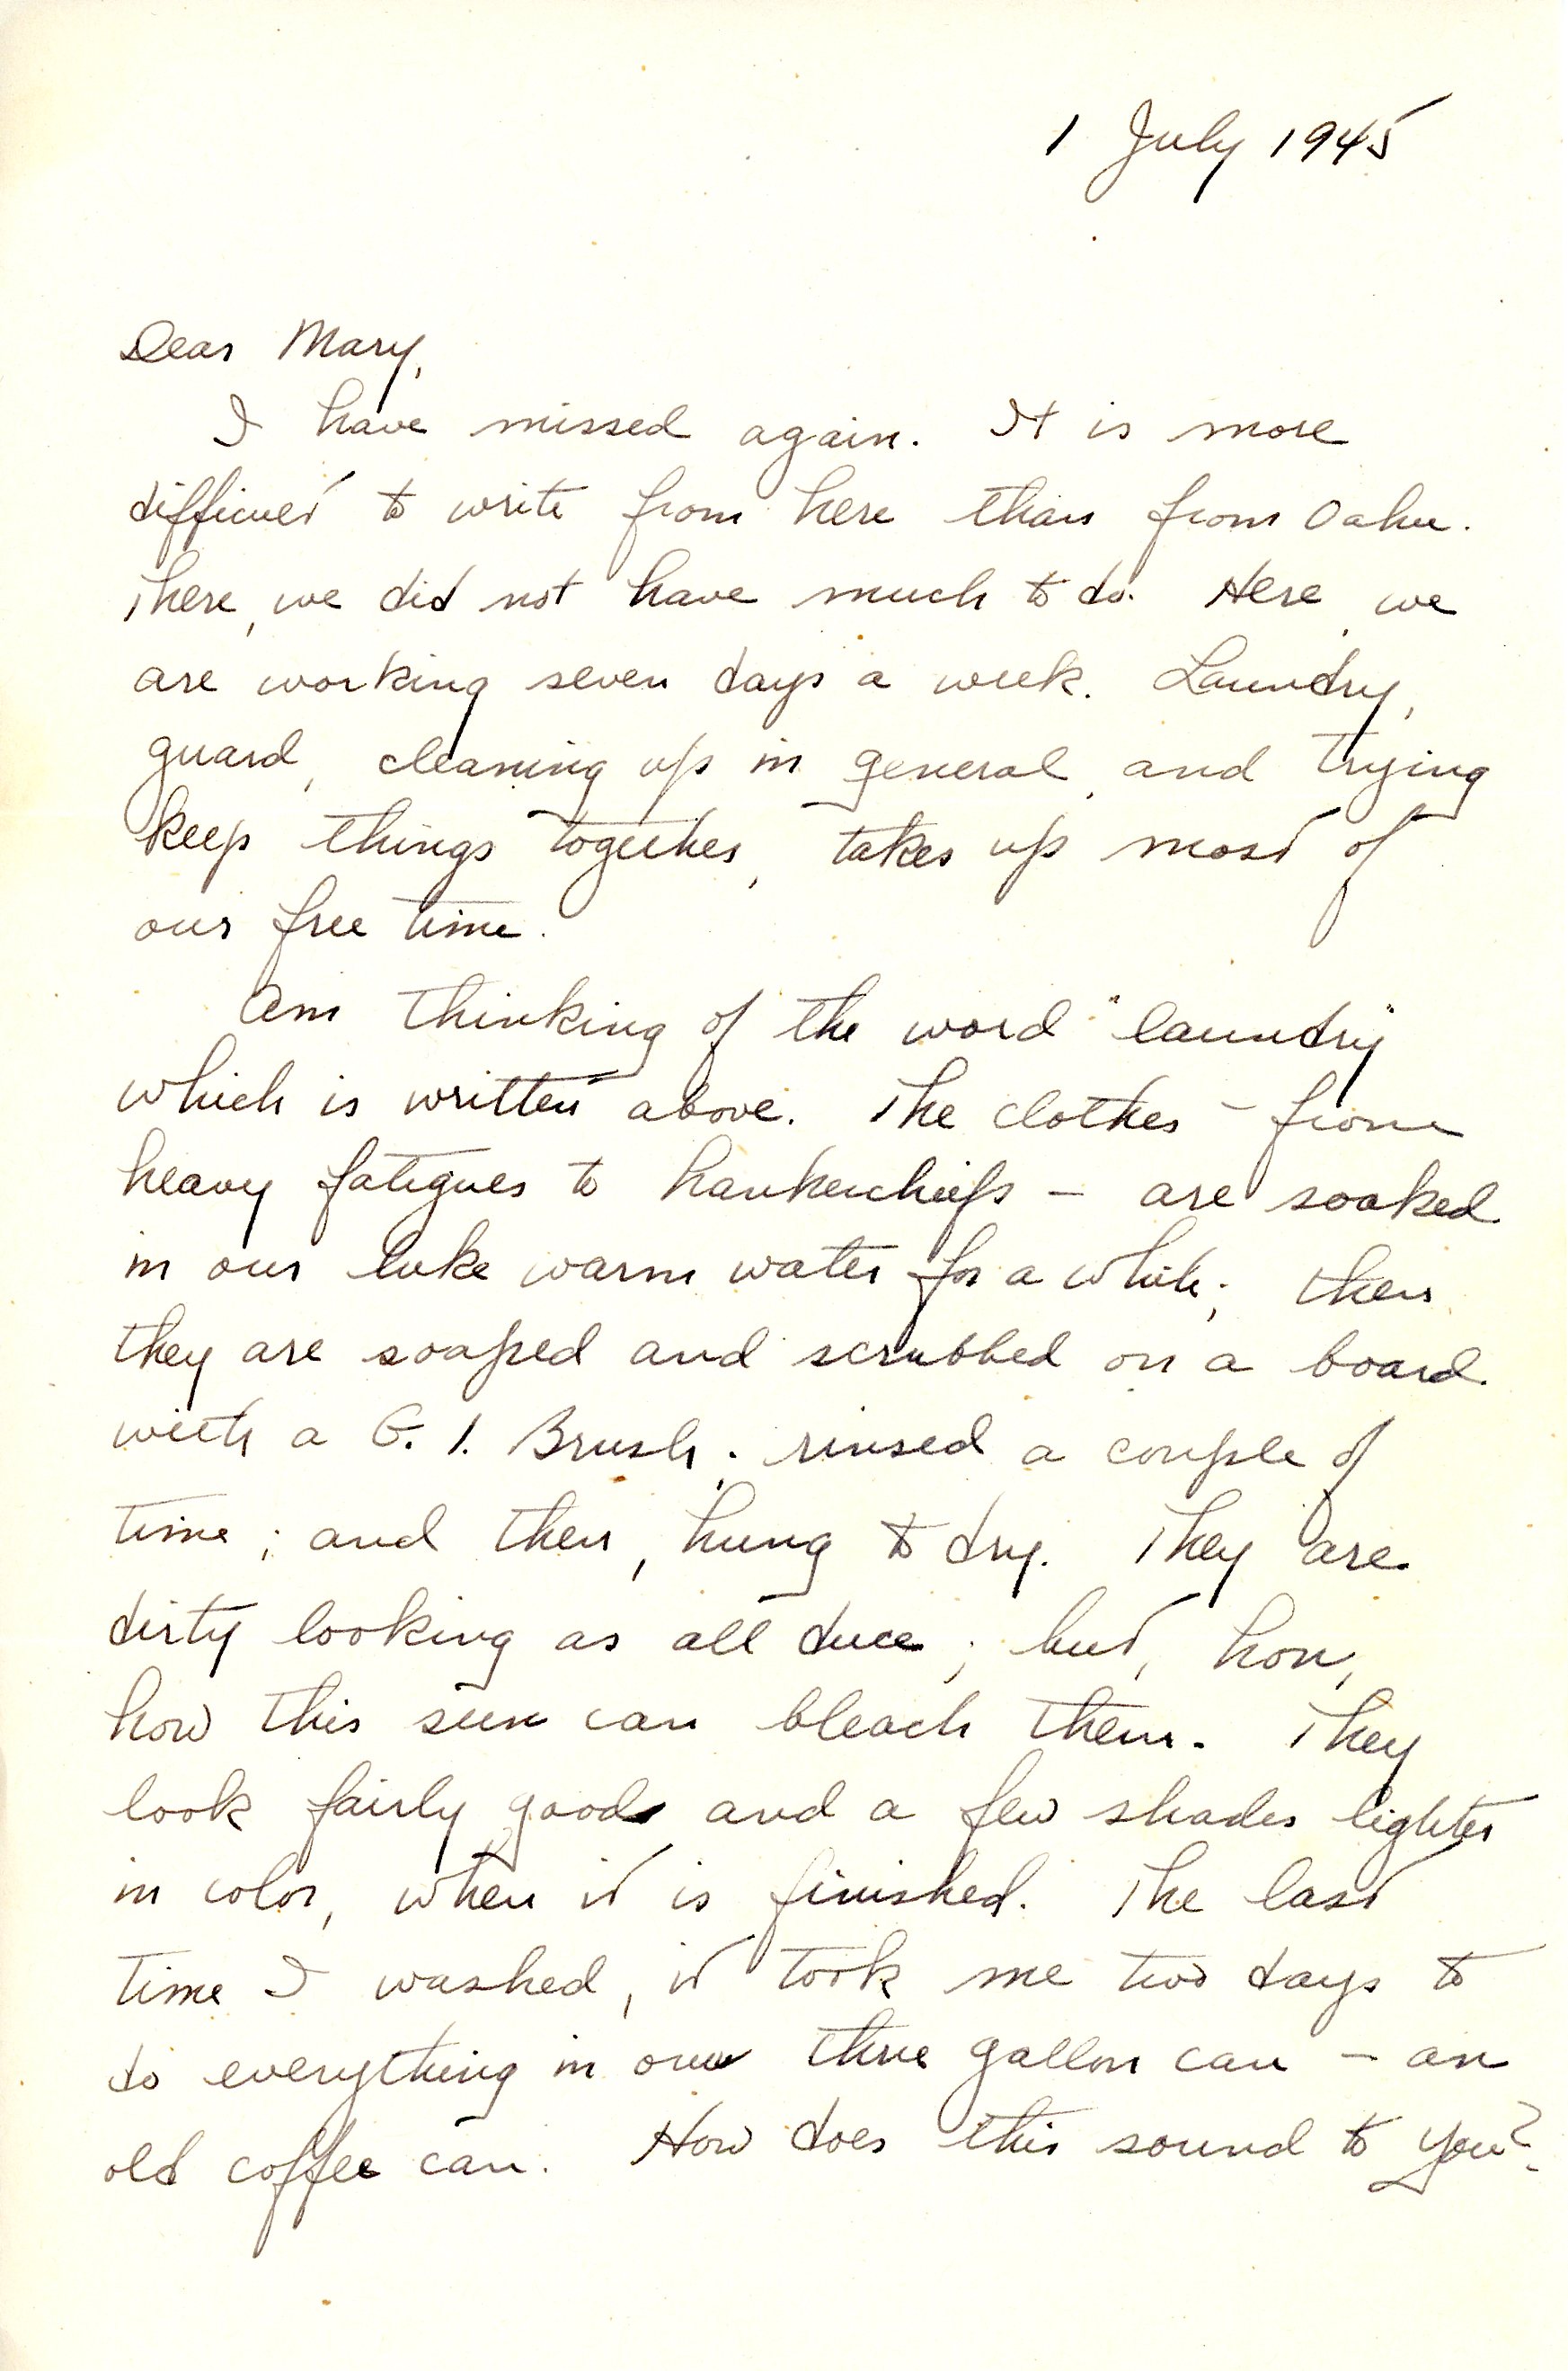 1 July 1945
Dear Mary,
I have missed again. It is more
difficult to write from here than from Oahu.
There, we did not have much to do. Here, we
are working seven days a week. Laundry,
guard, cleaning up in general, and trying
keep things together, takes up most of
our free time.
Am thinking of the word "laundry"
which is written above. The clothes - from
heavy fatigues to hankerchiefs - are soaked
in our luke warm water for a while; then
they are soaped and scrubbed on a board
with a G. I. Brush; rinsed a couple of
time; and then, hung to dry. They are
dirty looking as all duce; but, hon,
how this sun can bleach them. They
look fairly good and a few shades lighter
in color, when it is finished. The last
time I washed, it took me two days to
do everything in our three gallon can - an
old coffee can. How does this sound to you?